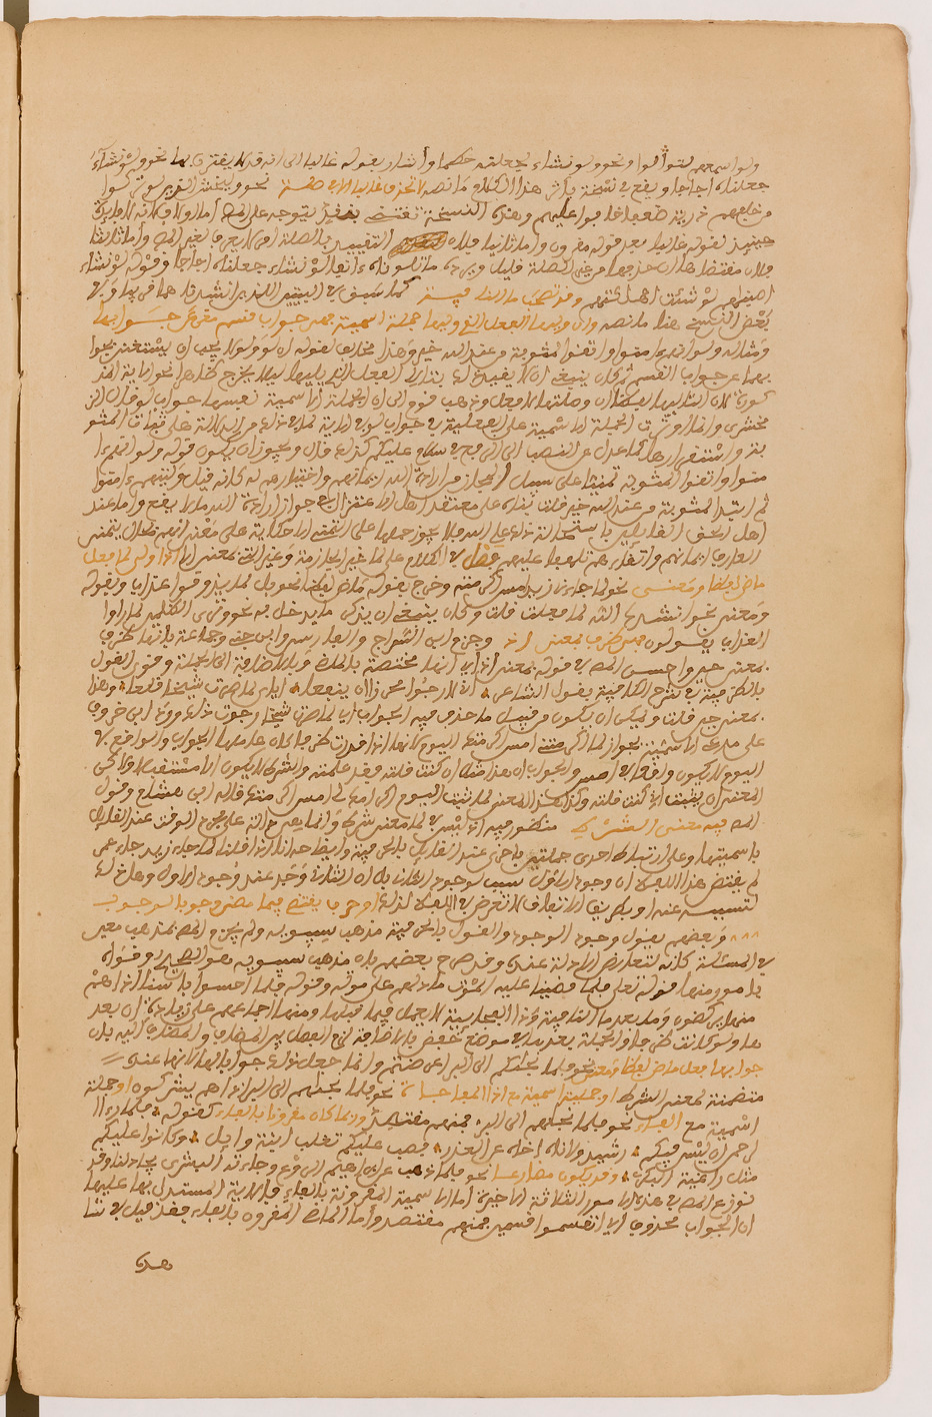 ولو اسمعهم لتولوا ونحو ولو نشاء لجعلنه حطما وأشار بقوله غالبا الى انه قد لا يقترن بها نحو ولو نشاء
جعلناه اجاجا ويقع في نسخة بأثر هذا الكلام ما نصه لا تحذف غالبا الا في صلة نحو وليخش الذين لو تركوا
من خلفهم ذرية ضعفا خافوا عليهم وهذه النسخة تقتضي
حينئذ لقوله غالبا بعد قوله مقرون واما ثانيا فلان التقييد بالصلة واما ثالثا
فلان مقتضاها ان حذفها من غير الصلة قليل ويرده ما تلوناه ءانفا لو نشاء جعلناه اجاجا وقوله لو نشاء
اصبنهم لو شئت اهلكتهم وقد تصحب ما النافية كما سبق في البيتين اللذين انشدنا هما في
بعض النسخ هنا ما نصه وان ولى الفعل الذي وليها جملة اسمية فهي جواب قسم مغن عن جوابها
ومثاله ولو انهم ءامنوا واتقوا لمثوبة من عند الله خير وهذا مخالف لقوله ان لو ولولا يجب ان يستغنى بجوا
بهما عن جواب القسم ثم كان ينبغي ان لا يقيد ذلك بتالي الفعل الذي يليها ليلا يخرج كخلاهر نحو الاية المذ
كورة لان تاليها ان وصلتها لا فعل وذهب قوم الى ان الجملة الاسمية نفسها جواب لو قال الز
مخشري وانما اوثرت الجملة الاسمية على الفعلية في جواب لو في الاية لما في ذلك من الدلالة على ثبات المثو
بة واستقرارها كما عدل عن النصب الى الرفع في سلام عليكم كذلك قال ويجوز ان يكون قوله ولو انهم ءا
منوا واتقوا لمثوبة تمنيا على سبيل المجاز من ارادة الله ايمانهم واختيارهم له كانه قيل وليتهم ءامنوا
ثم ابتدا لمثوبة من عند الله خير قلت بناه على معتقد اهل الاعتزال في جواز ارادة الله ما لا يقع واما عند
اهل الحق القائلين باستحالة ذلك على الله فلا يجوز حملها على التمني الا حكاية على معنى انهم بحال يتمنى
العارف ايمانهم واتقاءهم تلهفا عليهم فصل في الكلام على لما غير الجازمة وغير التي بمعنى الا اذا ولى لما فعل
ماض لفظا ومعنى نحو لما جاءني زيد امس اكرمته وخرج بقوله ماض لفظا نحو بل لما يذوقوا عذاب وبقوله
ومعنى نحو انشدك الله لما فعلت قلت وكان ينبغي ان يذكر ما يدخل به نحو وترى الظلمين لما راوا
العذاب يقولون فهي ظرف بمعنى اذ وجزم ابن السراج والفارسي وابن جني وجماعة بانها ظرف
بمعنى حين واحسن المص في قوله بمعنى اذ لانها مختصة بالماضي وبالاضافة الى الجملة وقوى القول
بالظرفية في شرح الكافية بقول الشاعر اني لارجو محرزا ان ينفعا اياي لما صرت شيخا قلعا وهذا
بمعنى حين قلت ويمكن ان يكون من قبيل ما حذف فيه الجواب اي لما صرت شيخا رجوت ذلك ورد ابن خروف
على مدعى الاسمية بجواز لما اكرمتني امس اكرمتك اليوم لانها اذا قدرت ظرفا كان عاملها الجواب والواقع في
اليوم لا يكون واقعا في امس والجواب ان هذا مثل ان كنت قلته فقد علمته والشرط لا يكون الا مستقبلا ولاكن
المعنى ان يثبت اني كنت قلته وكذا هنا المعنى لما ثبت اليوم اكرامك لي امس اكرمتك قاله ابن هشام وقول
المص فيه معنى الشرط منظور فيه اذ ليس في لما معنى شرط وانما يصرح النحاة على مجرد الوقت عند القائل
باسميتها وعلى ارتباط احدى جملتيها بالاخرى عند القائل بالحرفية وايضاحه انا اذا قلنا لما جاء زيد جاء عمرو
لم يقتض هذا اللفظ ان وجود الاول سبب لوجود الثاني بل ان الثاني وجد عند وجود الاول وهل ذلك
لتسببه عنه او بطريق الاتفاق لا تعرض في اللفظ لذلك او حرف يقتضي فيما مضى وجوبا لوجوب
وبعضهم يقول وجود الوجود والقول بالحرفية مذهب سيبويه ولم يجزم المص بمذهب معين
في المسئلة كانه لتعارض الادلة عنده وقد صرح بعضهم بان مذهب سيبويه هو الصحيح وقواه
بامور منها قوله تعلى فلما قضينا عليه الموت ما دلهم على موته وقوله فلما احسوا باسنا اذا هم
منها يركضون وما بعد ما النافية واذا الفجائية لا يعمل فيما قبلها ومنها اجماعهم على زيادة ان بعد
ها ولو كانت ظرفا والجملة بعدها في موضع خفض بالاضافة لزم الفصل بين المضاف والمضاف اليه بان
جوابها فعل ماض لفظا ومعنى نحو فلما نجاكم الى البر اعرضتم وانما جعل ذلك جوابا لها لانها عنده
متضمنة لمعنى الشرط او جملة اسمية مع اذا المفاجاة نحو فلما نجاهم الى البر اذا هم يشركون او جملة
اسمية مع الفاء نحو فلما نجاهم الى البر فمنهم مقتصد وربما كان مقرونا بالفاء كقوله فلما راا
لرحمن ان ليس فيهم رشيد ولا ناه اخاه عن الغدر فصب عليكم تغلب ابنة وايل وكانوا عليكم
مثل راغية البكر وقد يكون مضارعا نحو فلما ذهب عن ابراهيم الروع وجاءته البشرى يجادلنا وقد
نوزع المص في هذه الامور الثلاثة الاخيرة اما الاسمية المقرونة بالفاء فالاية المستدل بها عليها
ان الجواب محذوف اي انقسموا قسمين فمنهم مقتصد واما الماضي المقرون بالفاء فقد قيل في شا
هده